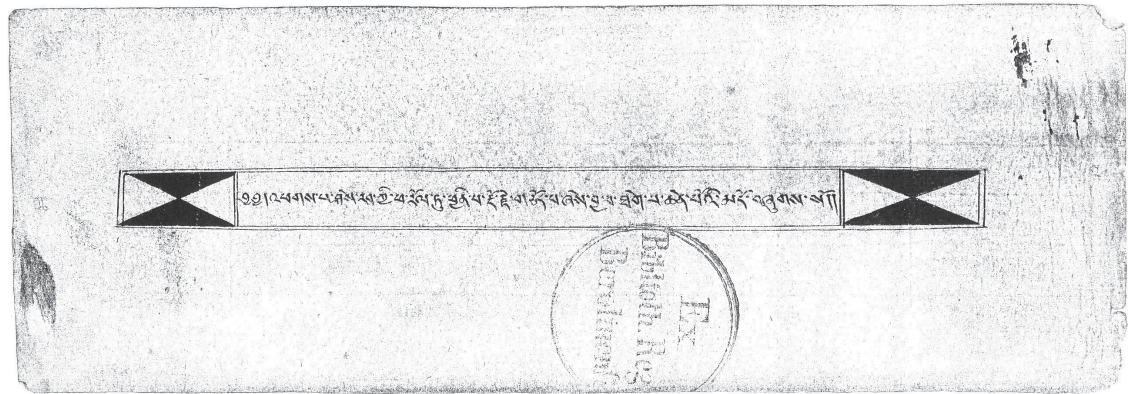 ༄༅།འཕགས་པ་ཤེས་རབ་ཀྱི་ཕ་རོལ་ཏུ་ཕྱིན་པ་རྡོ་རྗེ་གཅོད་པ་ཞེས་བྱ་བ་ཐེག་པ་ཆེན་པོའི་མདོ་བཞུགས་སོ།།
Ex
Biblioth. Reg
Berolinenf